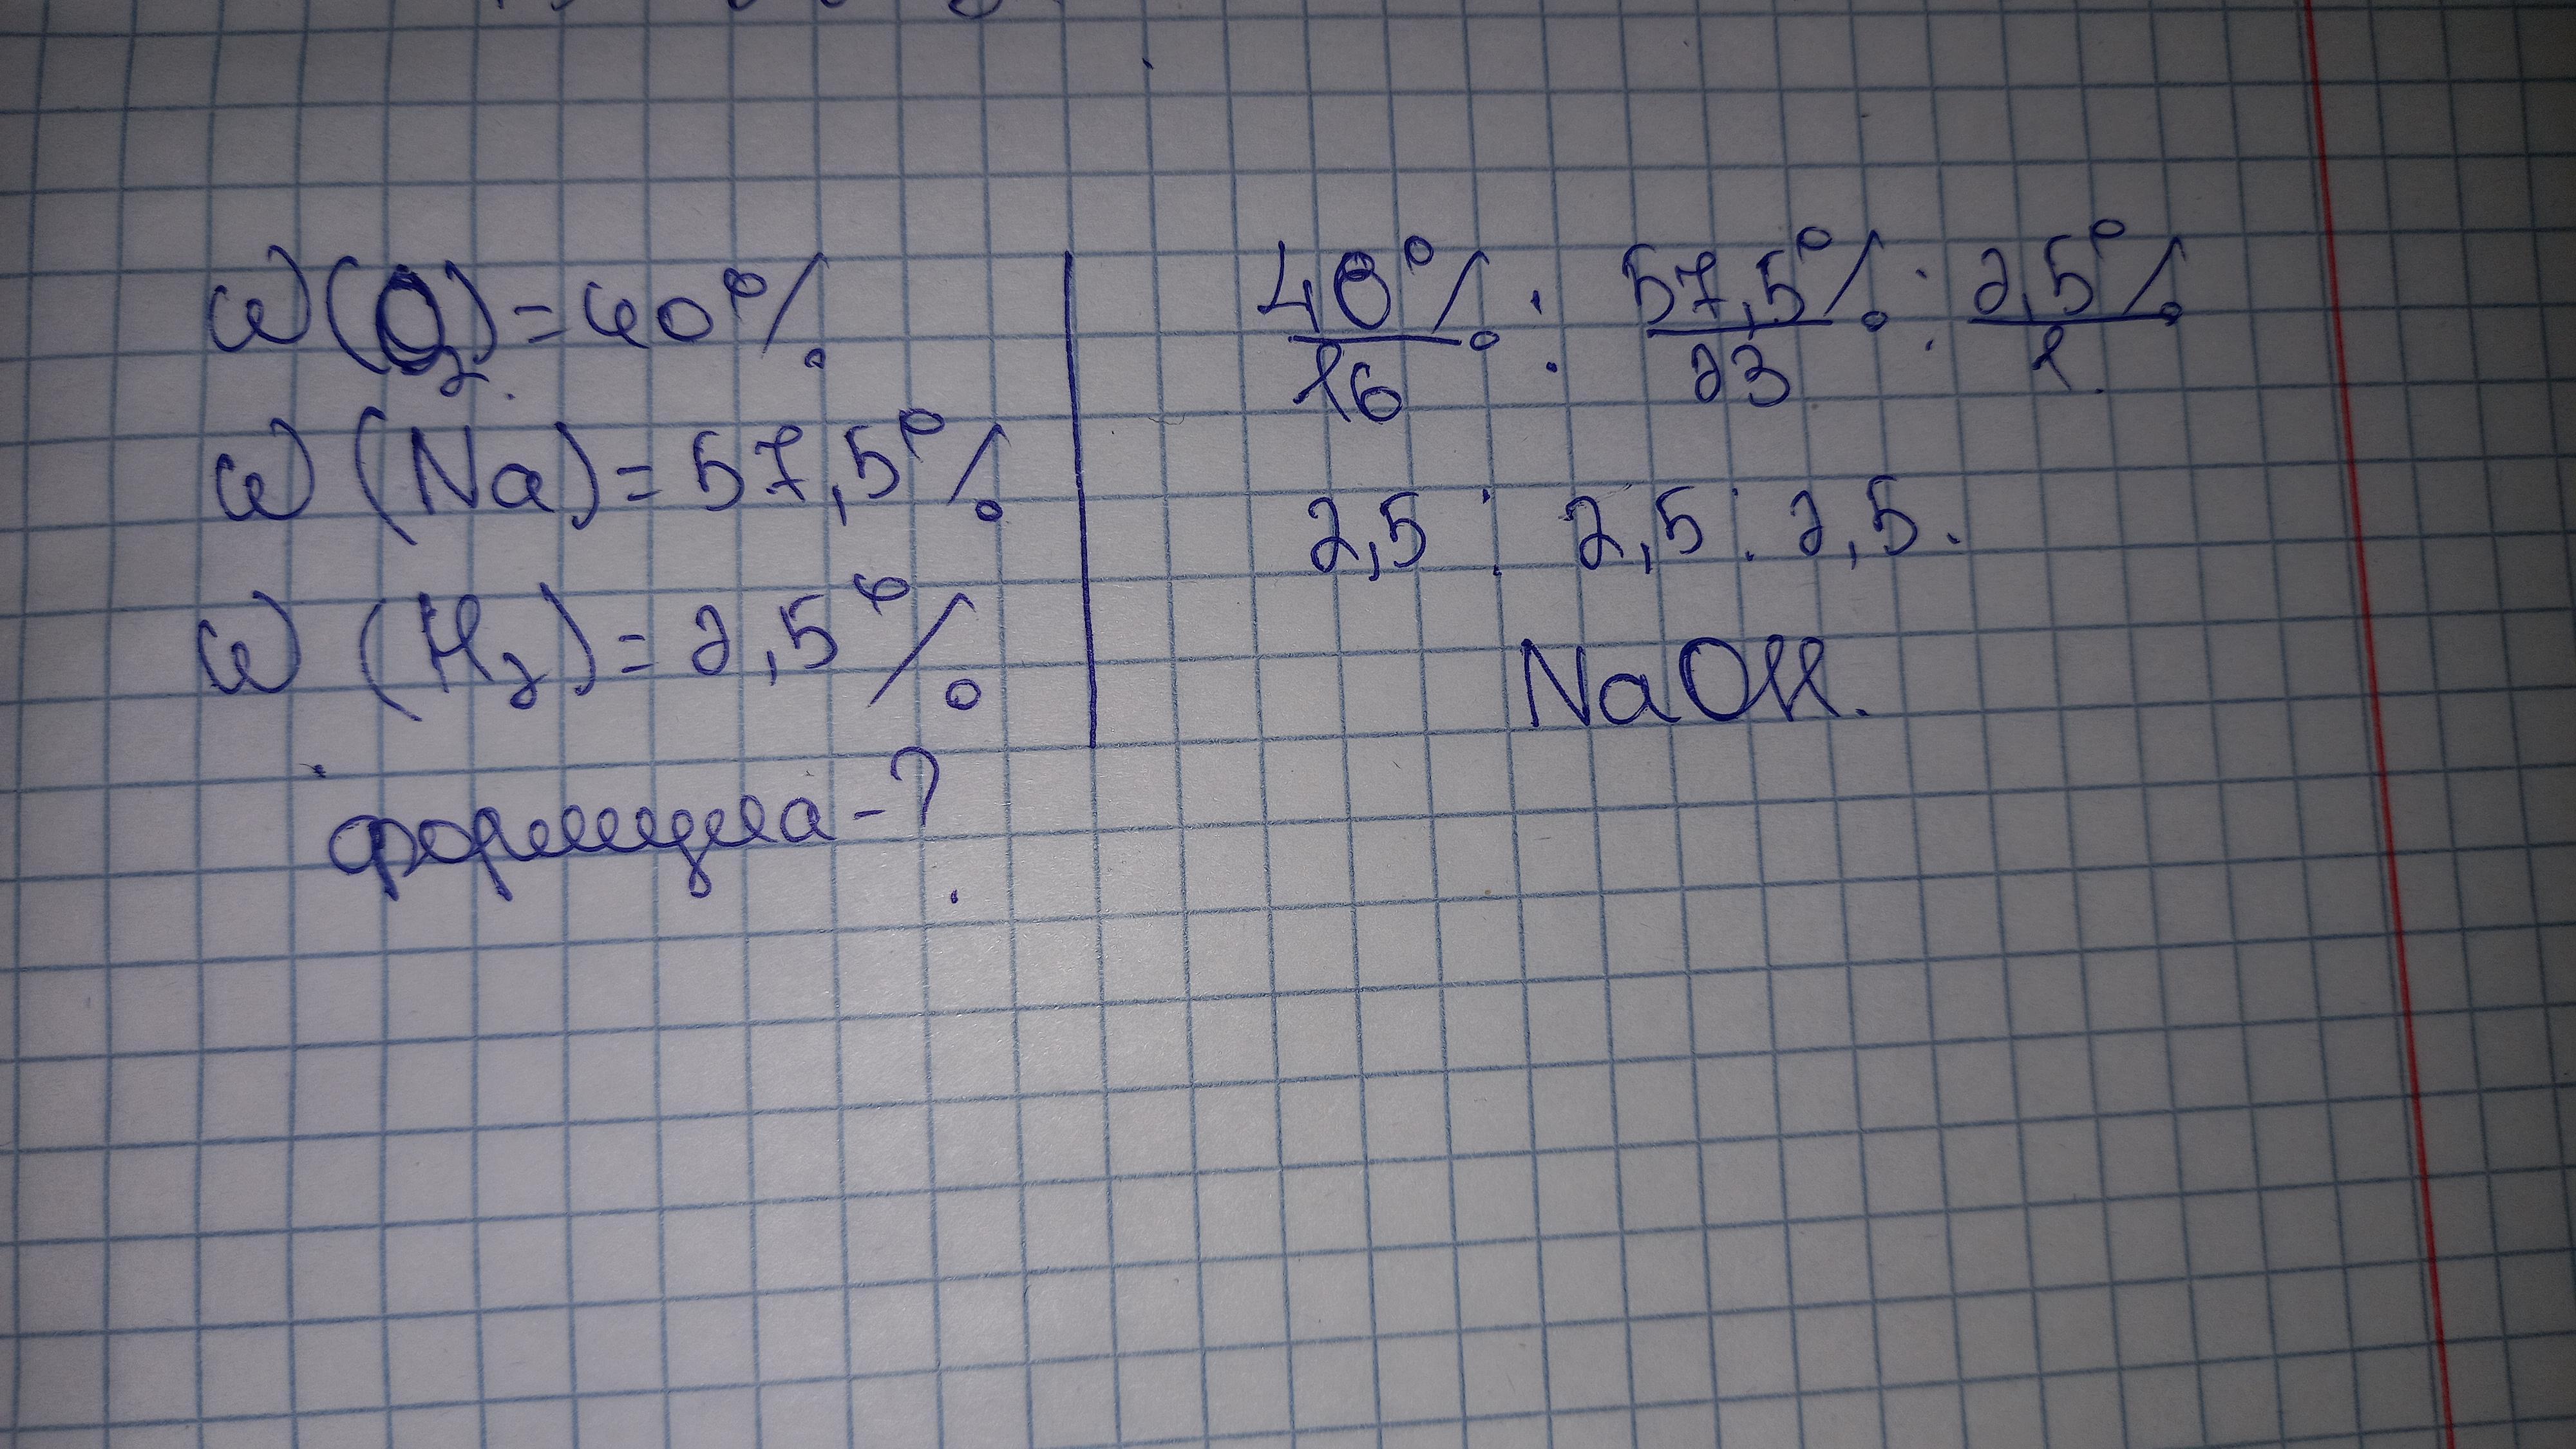 ω(O₂) = 40%
ω(Na) = 57,5%
ω(H₂) = 2,5%
формула - ?
40%/16 : 57,5%/23 : 2,5%/1.
2,5 : 2,5 : 2,5.
NaOH.